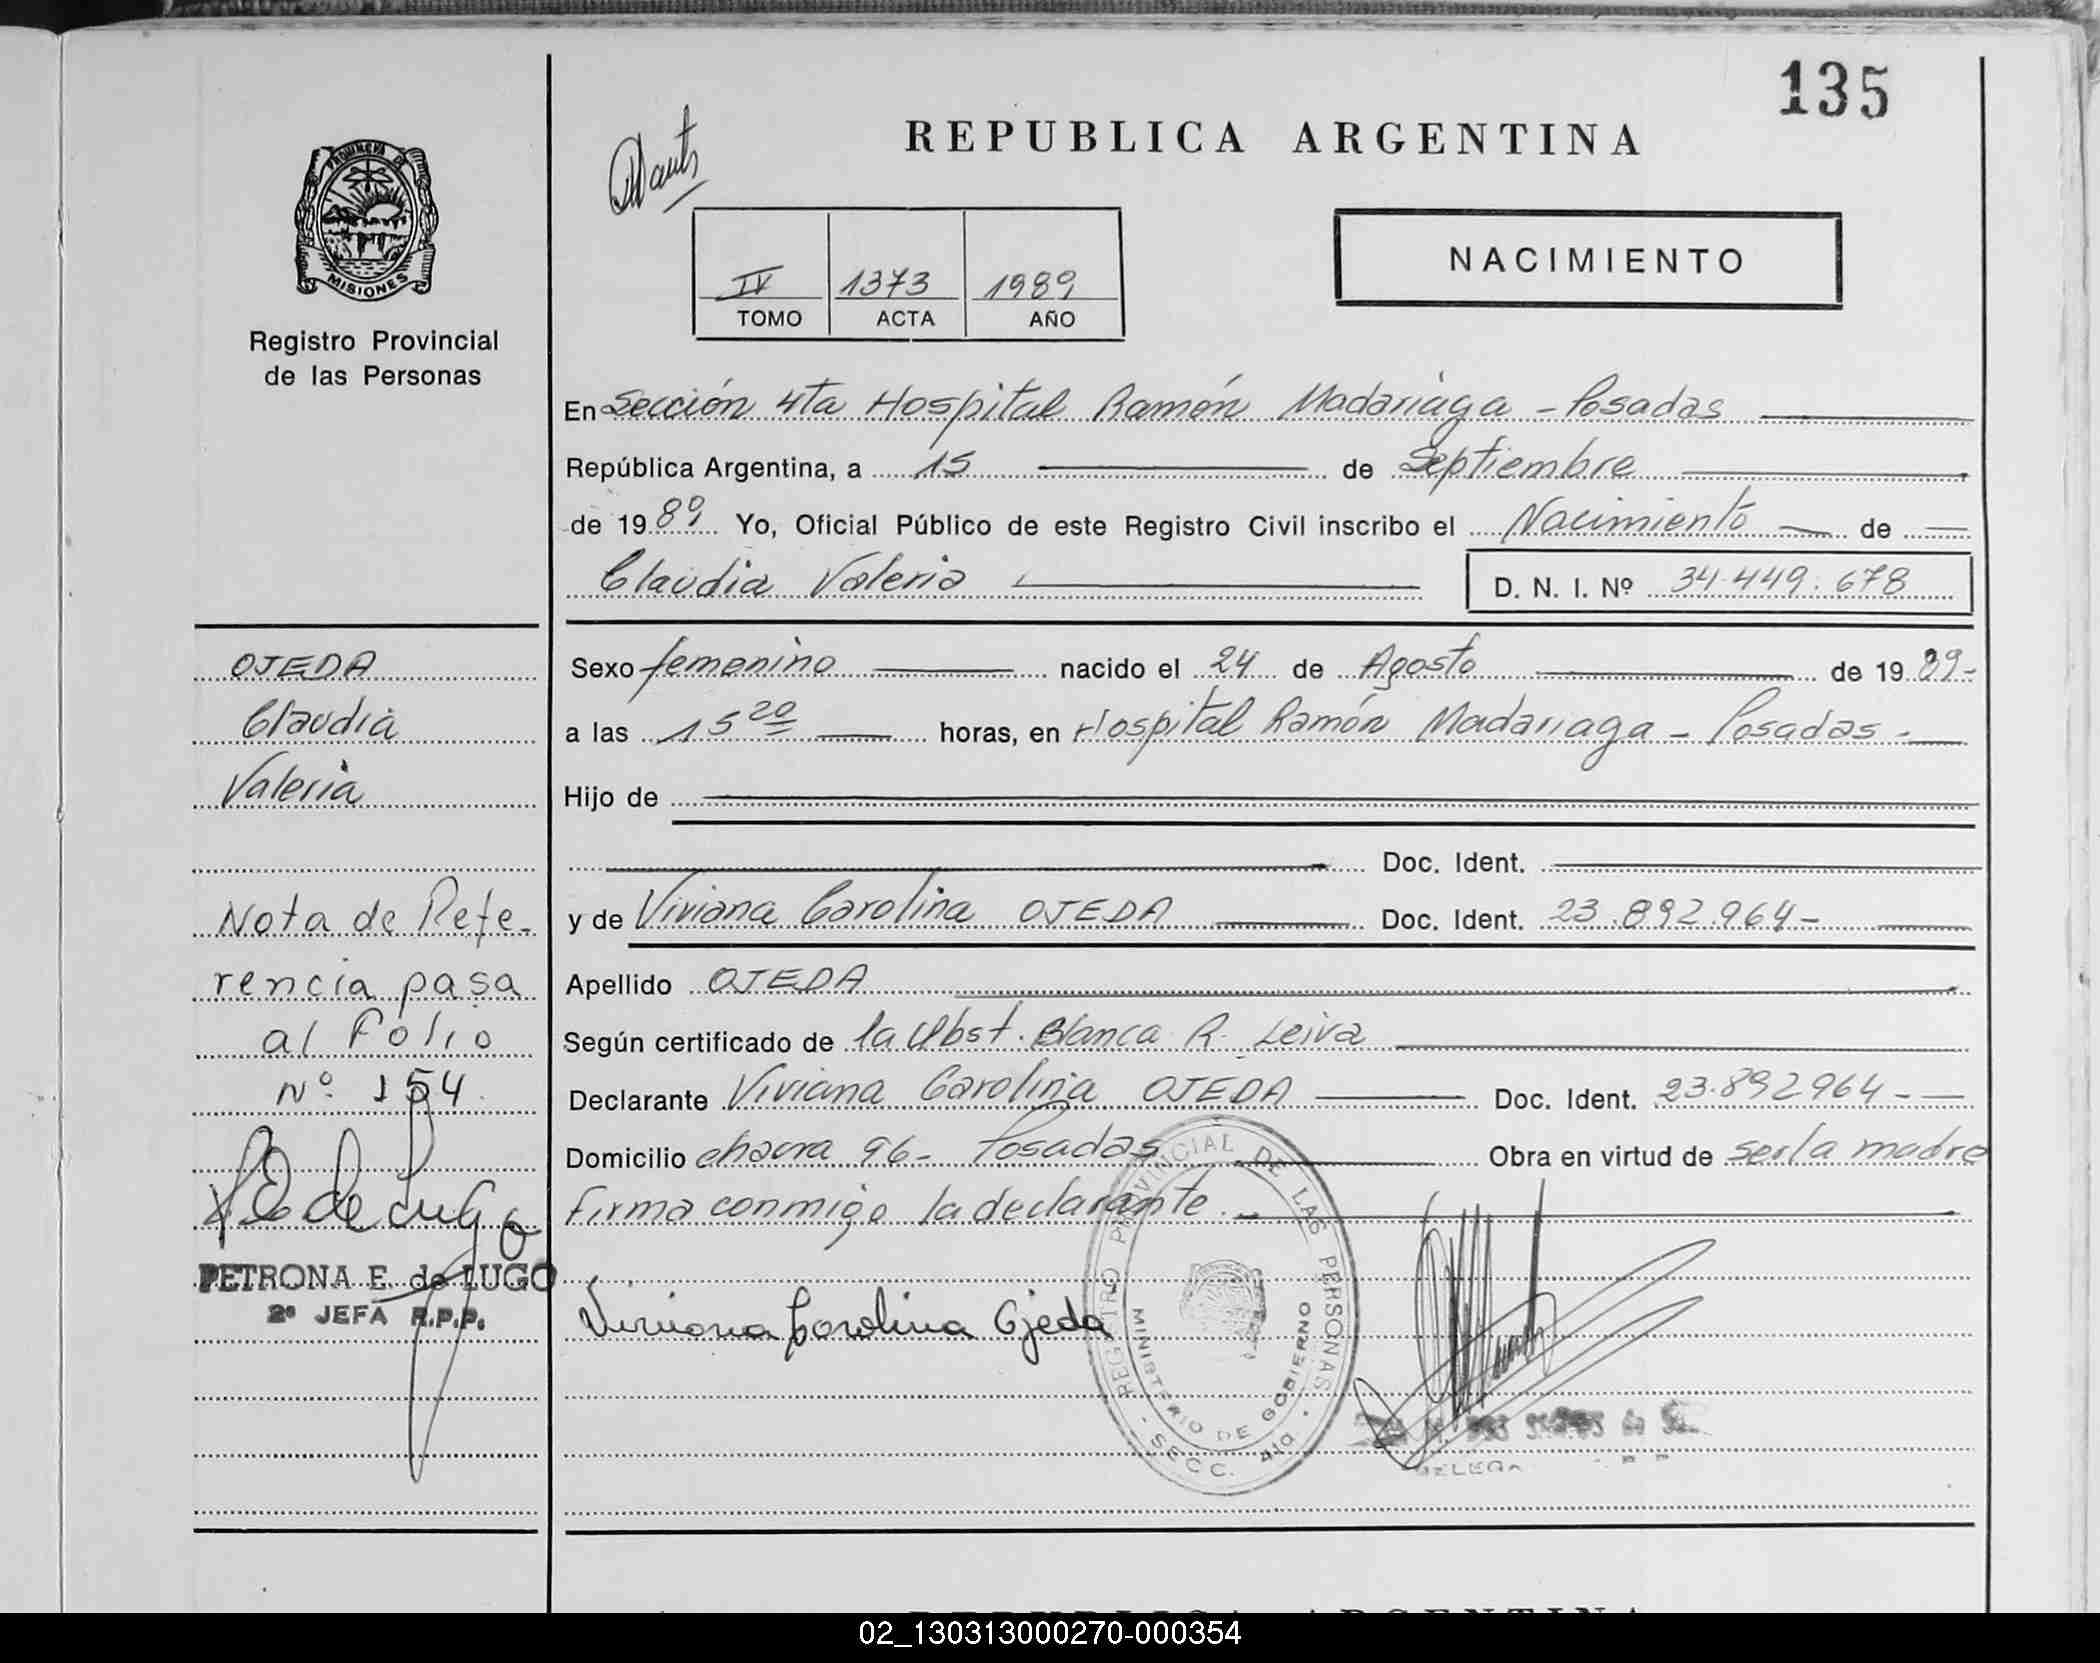 135
REPUBLICA ARGENTINA
PROVINCIA DE
MISIONES
Registro Provincial
de las Personas
NACIMIENTO
IV 1373 1989
TOMO ACTA AÑO
En Sección 4ta Hospital Ramón Madariaga - Posadas
República Argentina, a 15 de Septiembre
de 1989 Yo, Oficial Público de este Registro Civil inscribo el Nacimiento de
Claudia Valeria D. N. I. Nº 34.449.678
OJEDA
Claudia
Valeria
Sexo femenino nacido el 24 de Agosto de 1989-
a las 15 20 horas, en Hospital Ramón Madariaga - Posadas -
Hijo de
Doc. Ident.
y de Viviana Carolina OJEDA Doc. Ident. 23.892.964-
Apellido OJEDA
Según certificado de la Obst. Blanca R. Leiva
Declarante Viviana Carolina OJEDA Doc. Ident. 23.892964 -
Domicilio chacra 96- Posadas Obra en virtud de ser la madre
firma conmigo la declarante.
Nota de Refe-
rencia pasa
al Folio
Nº 154
PETRONA E. de LUGO
2º JEFA R.P.P.
Viviana Carolina Ojeda
REGISTRO PROVINCIAL DE LAS PERSONAS
MINISTERIO DE GOBIERNO
SECC. 4ta
REPUBLICA ARGENTINA
02_130313000270-000354